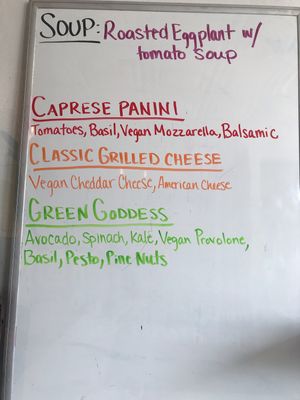 SOUP: Roasted Eggplant w/
tomato soup
CAPRESE PANINI
Tomatoes, Basil, Vegan Mozzarella, Balsamic
CLASSIC GRILLED CHEESE
Vegan Cheddar Cheese, American Cheese
GREEN GODDESS
Avocado, Spinach, Kale, Vegan Provolone,
Basil, Pesto, Pine Nuts